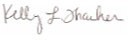 Kelly L Thacker